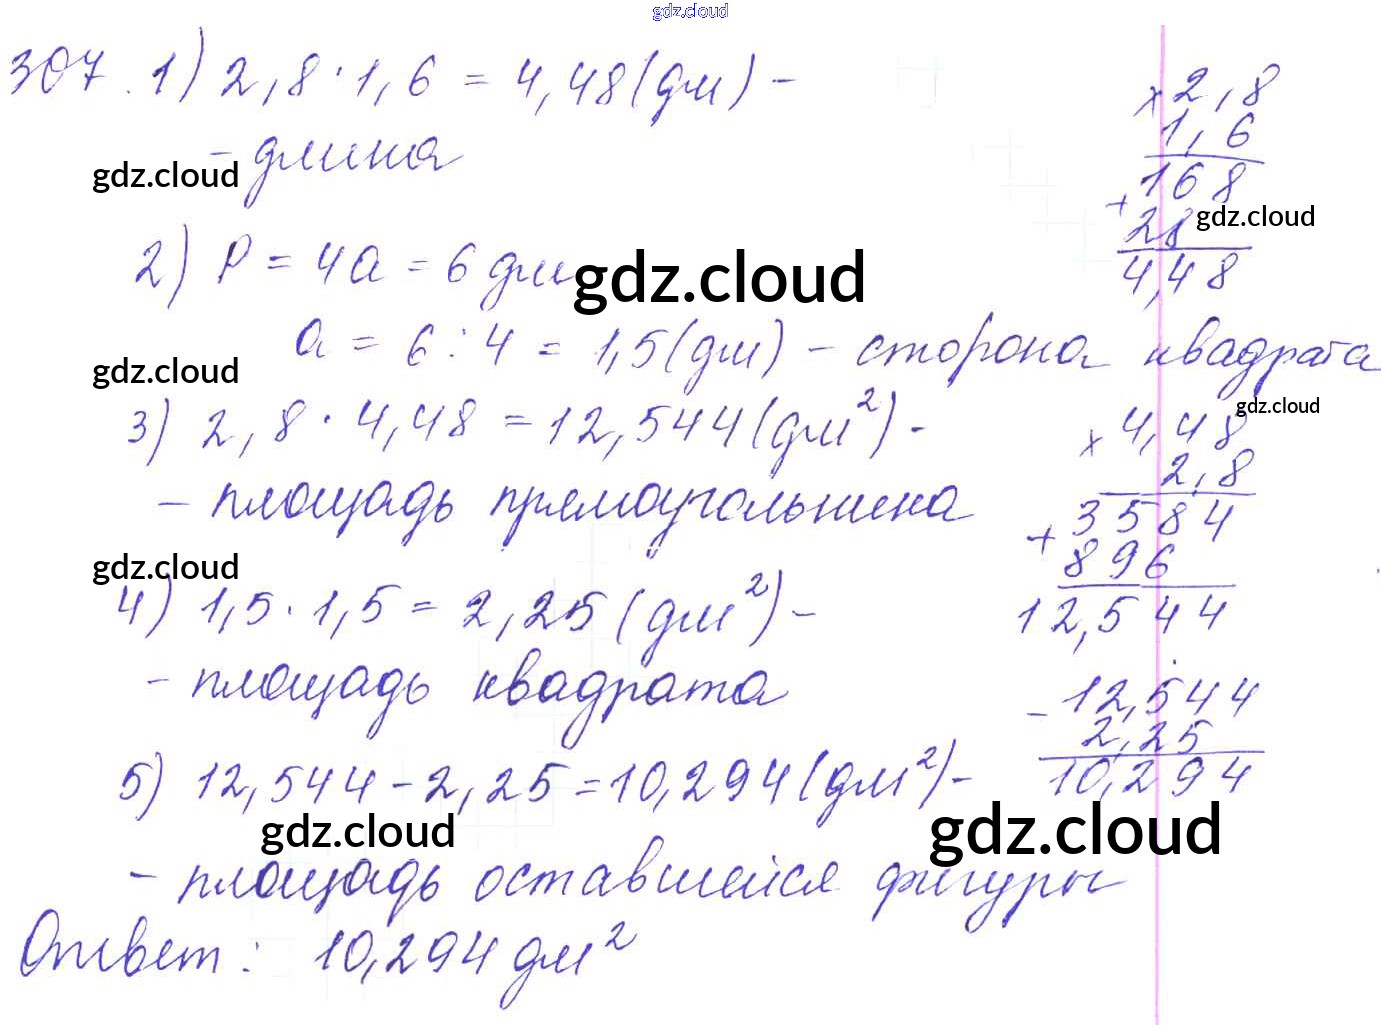 gdz.cloud
307. 1) 2,8 · 1,6 = 4,48 (дм) -
- длина
gdz.cloud
2) P = 4a = 6 дм
gdz.cloud
a = 6 : 4 = 1,5 (дм) - сторона квадрата
gdz.cloud
3) 2,8 · 4,48 = 12,544 (дм²) -
- площадь прямоугольника
gdz.cloud
4) 1,5 · 1,5 = 2,25 (дм²) -
- площадь квадрата
5) 12,544 - 2,25 = 10,294 (дм²) -
gdz.cloud
- площадь оставшейся фигуры
Ответ: 10,294 дм²
× 2,8
1,6
168
+
28
gdz.cloud
4,48
gdz.cloud
× 4,48
2,8
3584
+
896
12,544
- 12,544
2,25
10,294
gdz.cloud